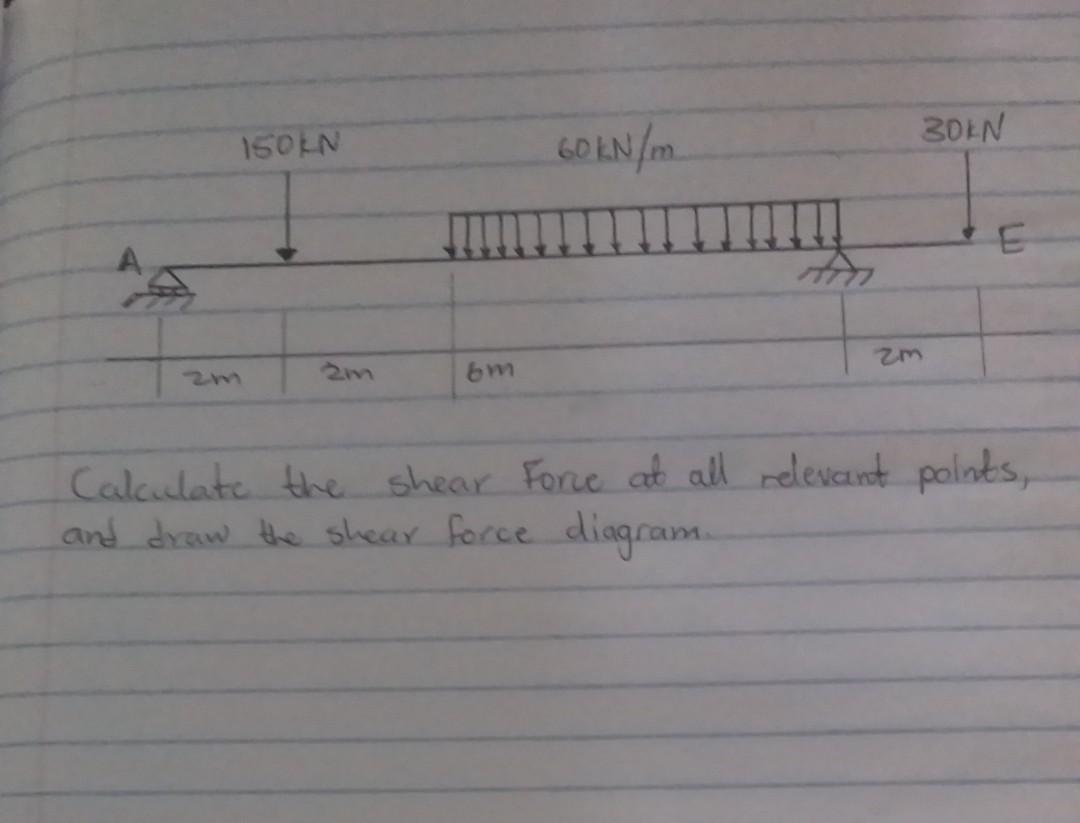 150kN 60kN/m 30kN
A E
2m 2m 6m 2m
Calculate the shear Force at all relevant points,
and draw the shear force diagram.